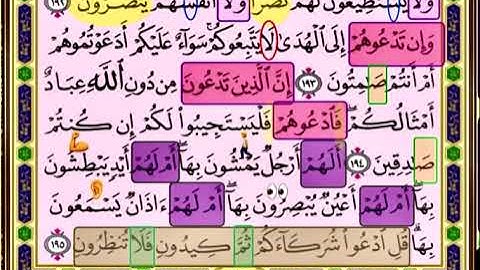 وَلَا يَسْتَطِيعُونَ لَهُمْ نَصْرًا وَلَآ أَنفُسَهُمْ يَنصُرُونَ ١٩٢
وَإِن تَدْعُوهُمْ إِلَى ٱلْهُدَىٰ لَا يَتَّبِعُوكُمْ ۚ سَوَآءٌ عَلَيْكُمْ أَدَعَوْتُمُوهُمْ
أَمْ أَنتُمْ صَٰمِتُونَ ١٩٣ إِنَّ ٱلَّذِينَ تَدْعُونَ مِن دُونِ ٱللَّهِ عِبَادٌ
أَمْثَالُكُمْ ۖ فَٱدْعُوهُمْ فَلْيَسْتَجِيبُوا۟ لَكُمْ إِن كُنتُمْ
صَٰدِقِينَ ١٩٤ أَلَهُمْ أَرْجُلٌ يَمْشُونَ بِهَآ ۖ أَمْ لَهُمْ أَيْدٍ يَبْطِشُونَ
بِهَآ ۖ أَمْ لَهُمْ أَعْيُنٌ يُبْصِرُونَ بِهَآ ۖ أَمْ لَهُمْ ءَاذَانٌ يَسْمَعُونَ
بِهَا ۗ قُلِ ٱدْعُوا۟ شُرَكَآءَكُمْ ثُمَّ كِيدُونِ فَلَا تُنظِرُونِ ١٩٥